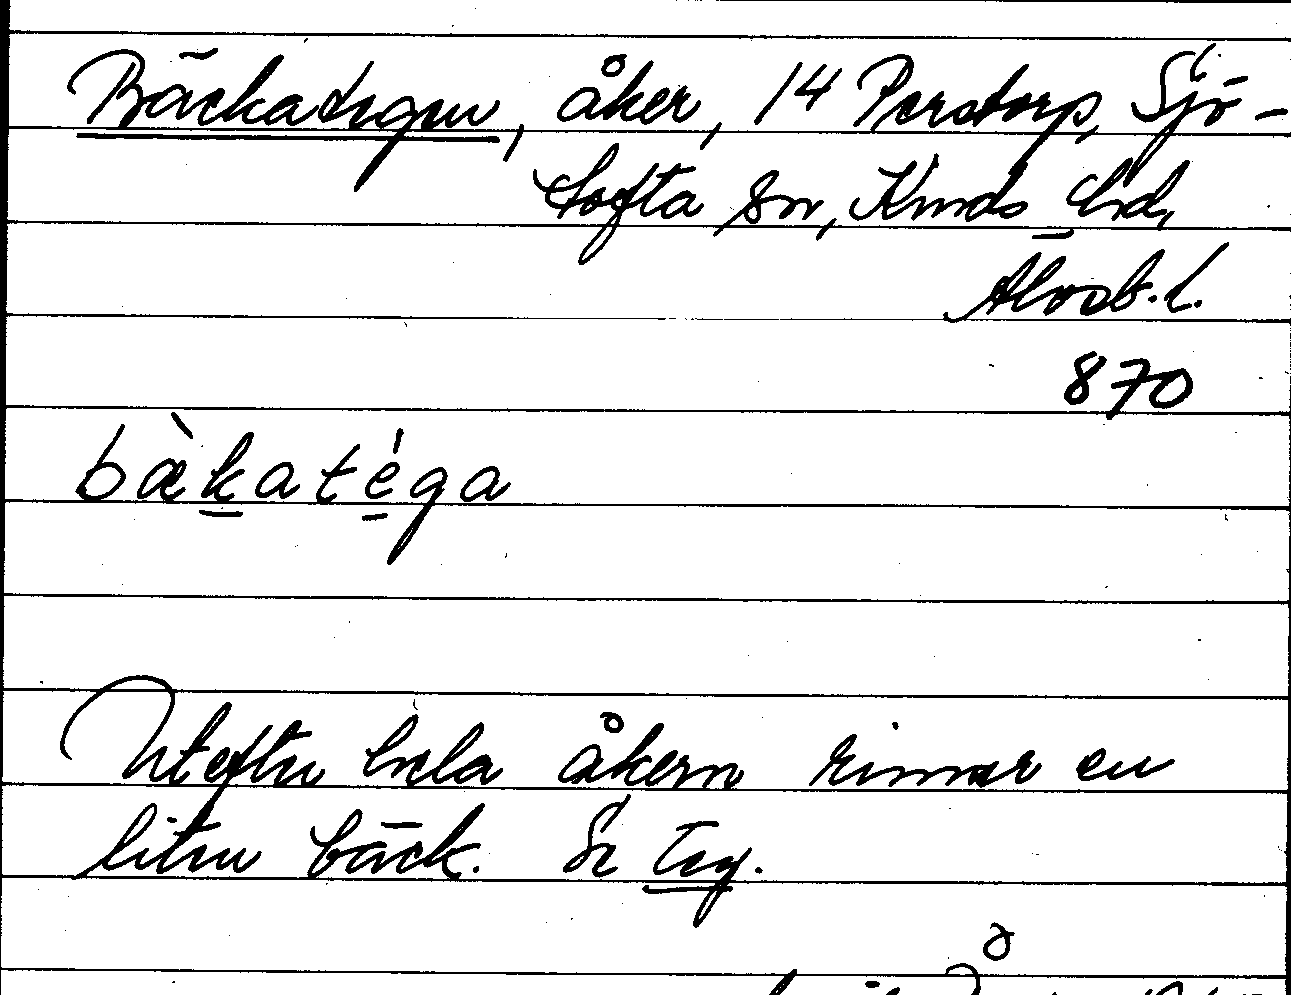 Bäckategen, åker, 14 Perstorp, Sjö-
tofta sn, Kinds hd,
Älvsb. l.
870
bæ̀katéga
Utefter hela åkern rinner en
liten bäck. Se teg.